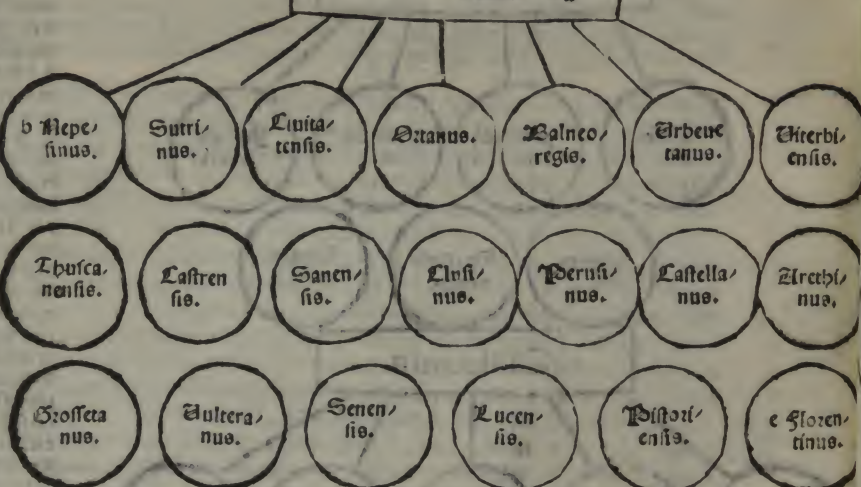 b Nepe⸗
sinus.
Sutri⸗
nus.
Ciuita⸗
tensis.
Ortanus.
Balneo⸗
regis.
Urbeue
tanus.
Uiterbi⸗
ensis.
Thusca⸗
nensis.
Castren
sis.
Sanen⸗
sis.
Clusi⸗
nus.
Perusi⸗
nus.
Castella⸗
nus.
Arethi⸗
nus.
Grosseta
nus.
Uultera⸗
nus.
Senen⸗
sis.
Lucen⸗
sis.
Pistori⸗
ensis.
e Floren⸗
tinus.